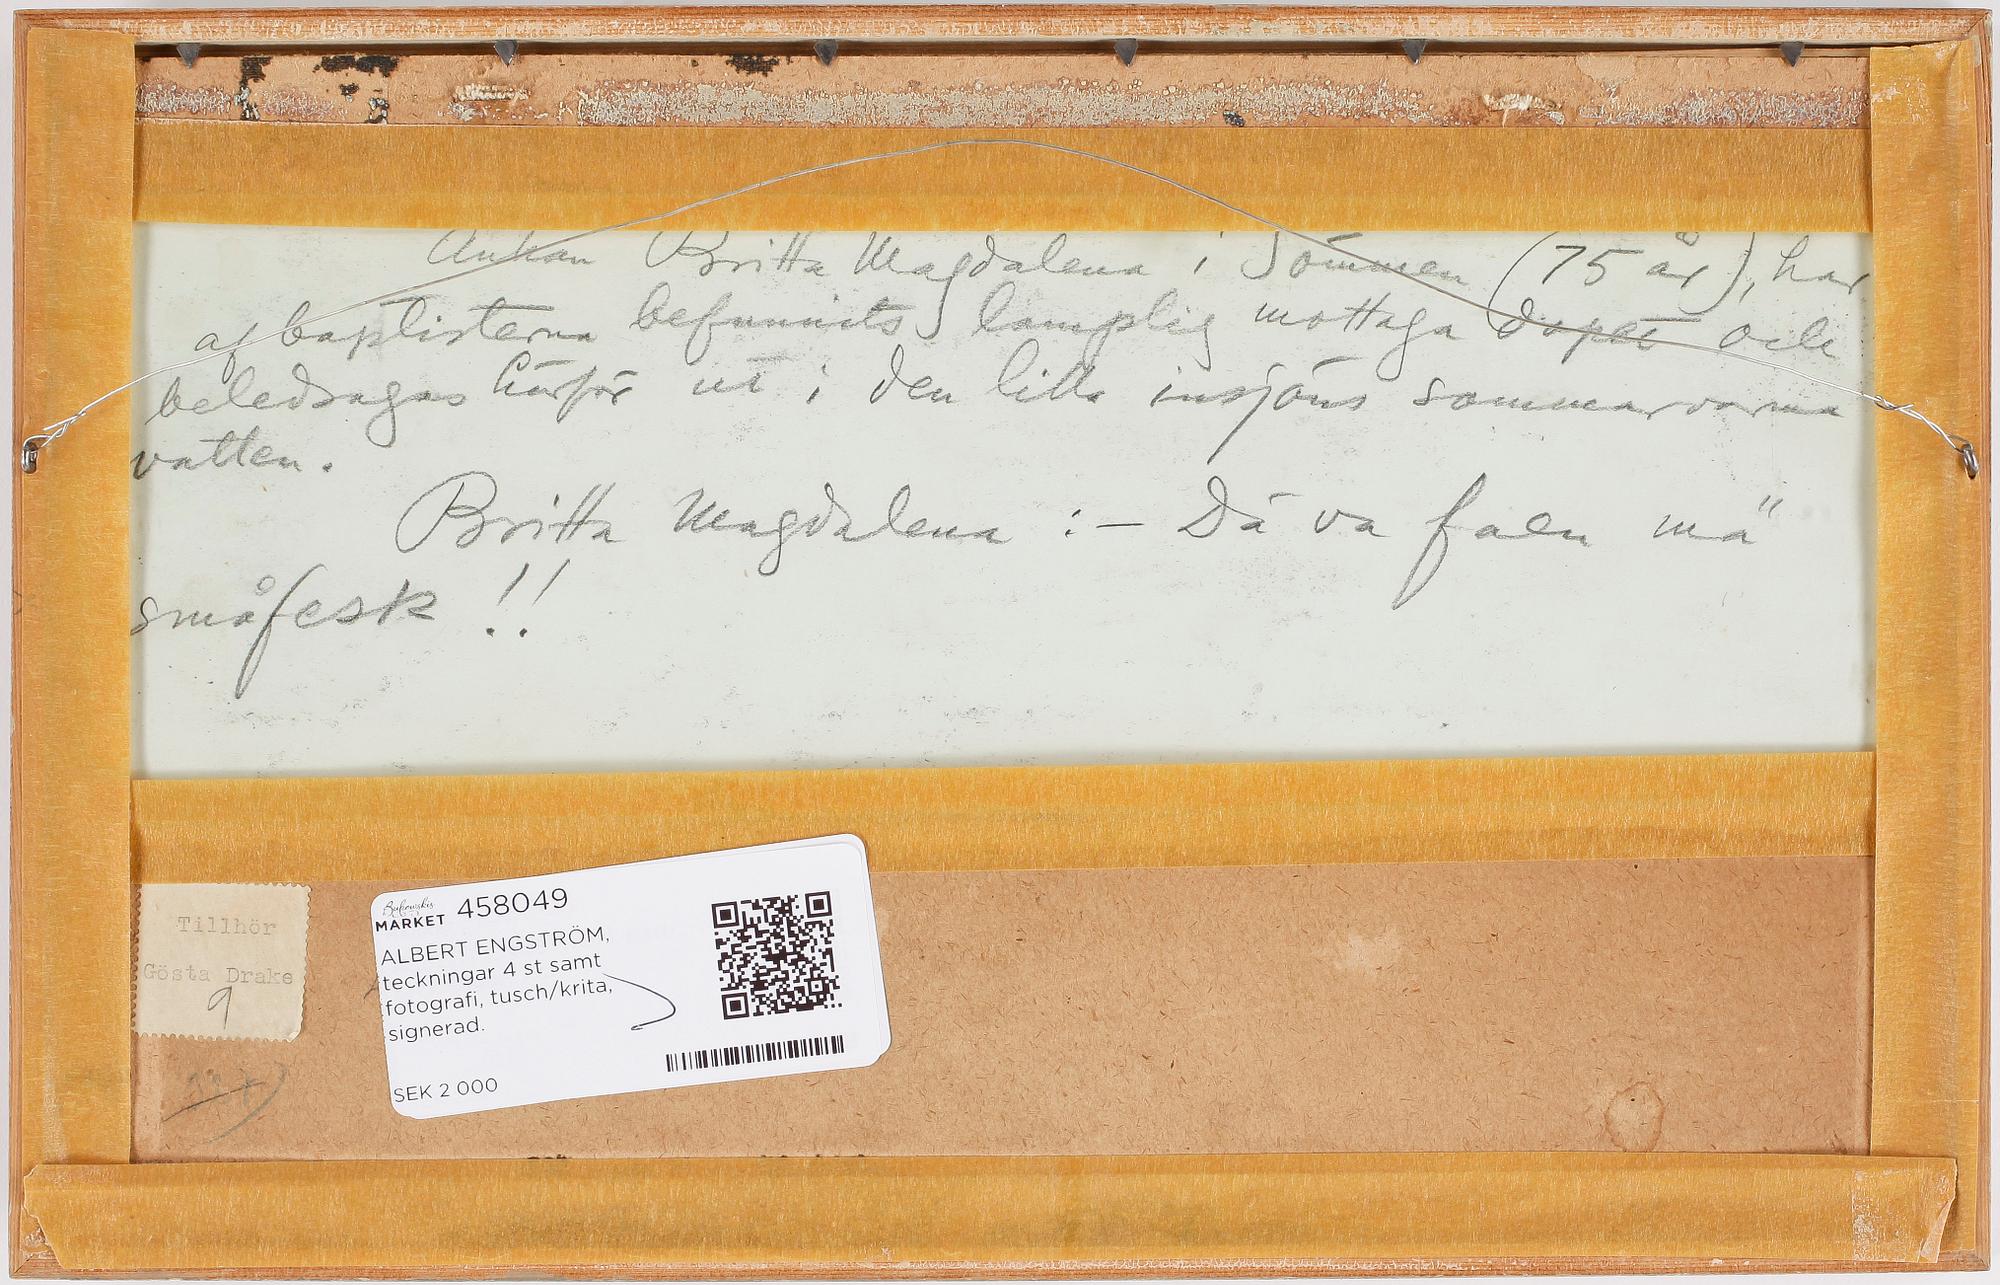 Änkan Britta Magdalena i Sömmen (75 år), har
af baptisterna befunnits lämplig mottaga dopet och
beledsagas härför ut i den lilla insjöns sommarvarma
vatten.
Britta Magdalena :— Dä va faen mä"
småfesk !!
Tillhör
Gösta Drake
9
Bukowskis
MARKET 458049
ALBERT ENGSTRÖM,
teckningar 4 st samt
fotografi, tusch/krita,
signerad.
SEK 2 000